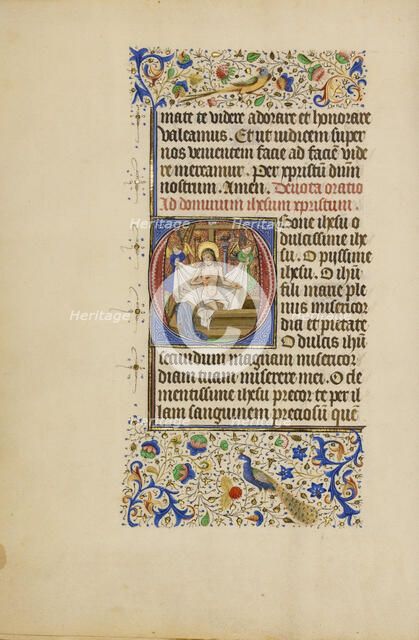 mate te videre adorare et honorare
valeamus. Et ut iudicem super
nos venientem facie ad faciē vide
re mereamur. Per xp̄ristū dn̄m
nostrum. Amen. Devota oratio
ad dominum ihesum xpristum.
O bone ihesu o
dulcissime ihe
su. O pyssime
ihesu. O ihū
fili marie ple
nus misericor
dia et pietate
O dulcis ihū
secundum magnam misericor
diam tuam miserere mei. O cle
mentissime ihesu precor te per il
lam sanguinem preciosū quē
Heritage Images
Heritage Images
Heritage Images
Heritage Images